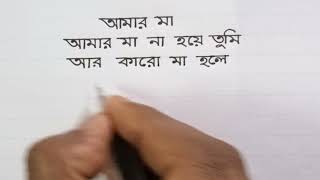 আমার মা
আমার মা না হয়ে তুমি
আর কারো মা হলে